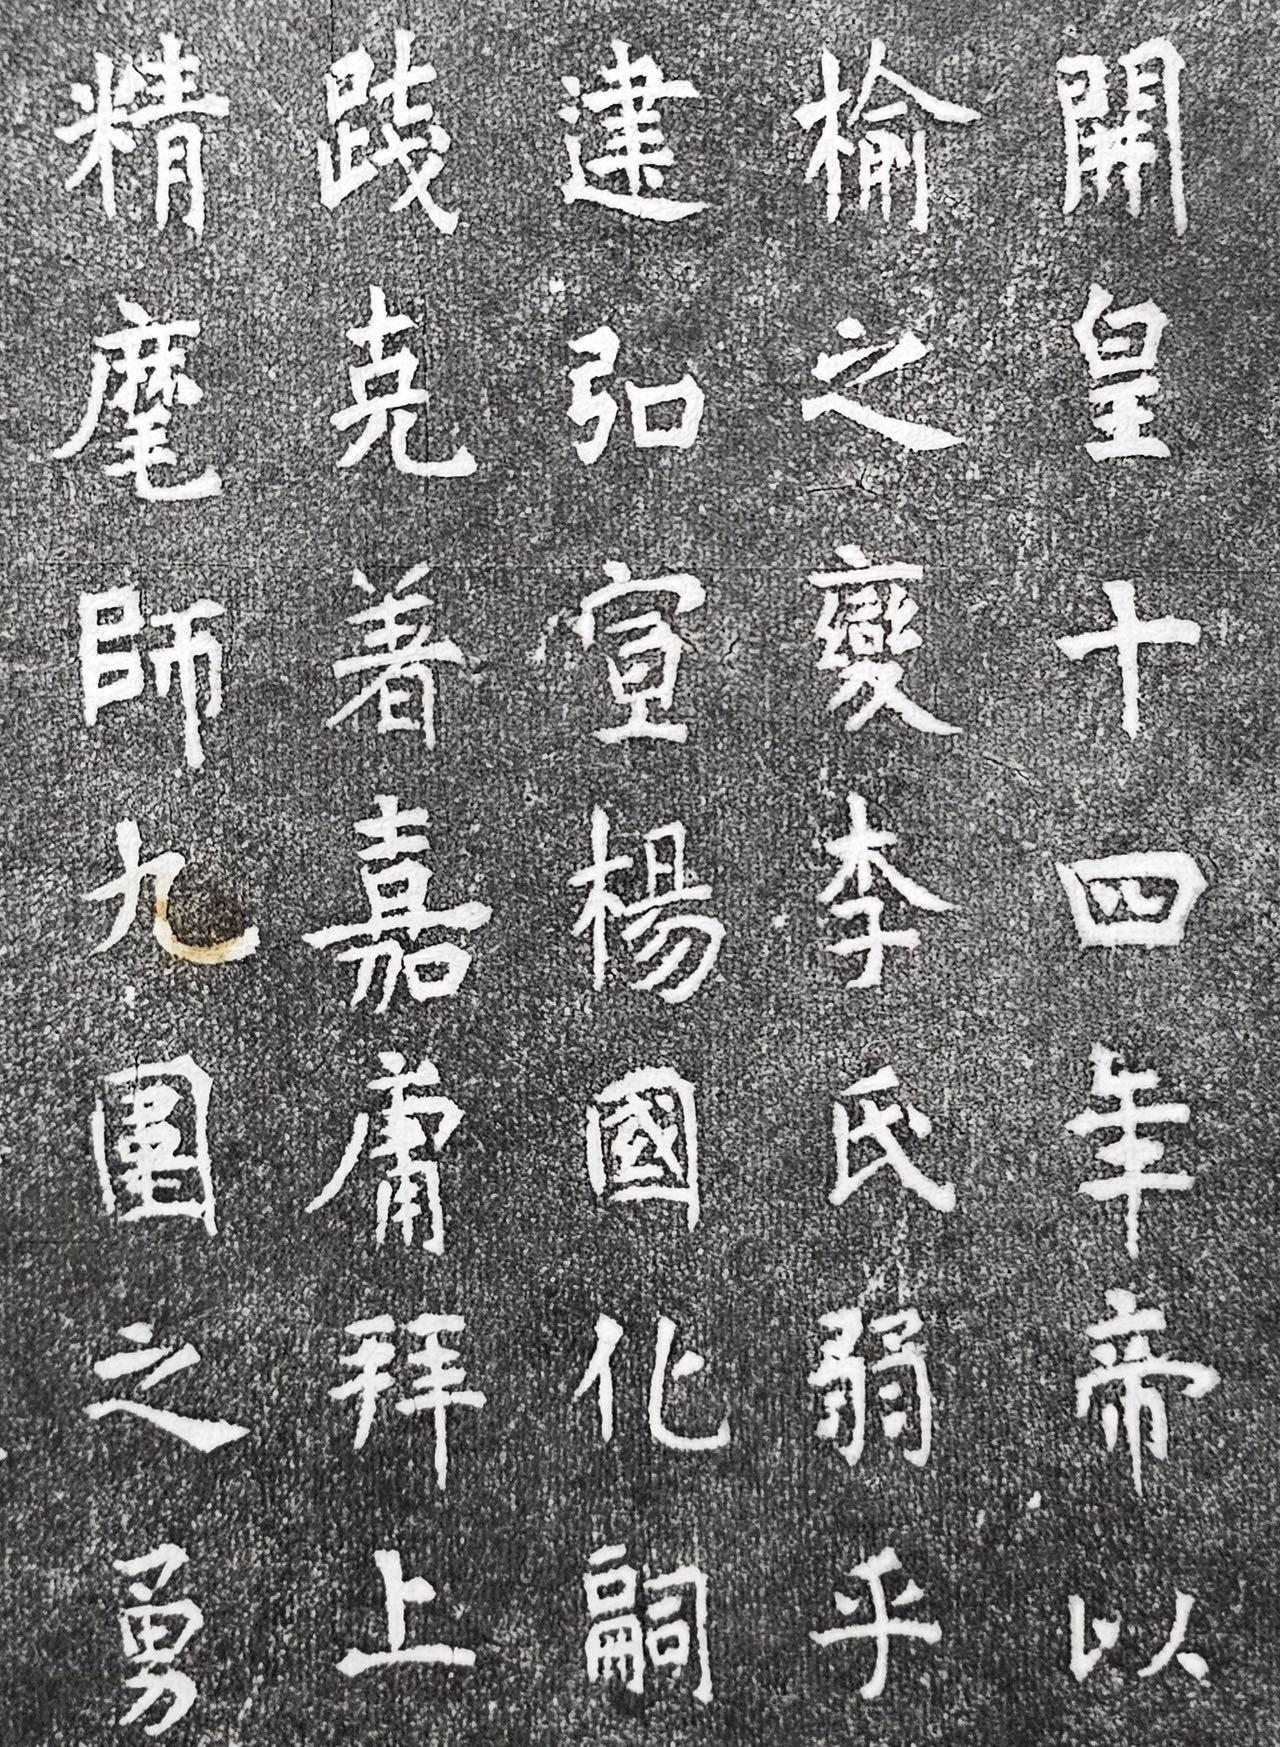 開皇十四年帝以
榆之變李氏弱乎
建弘宣楊國化嗣
踐克著嘉庸拜上
精麾師九圍之勇